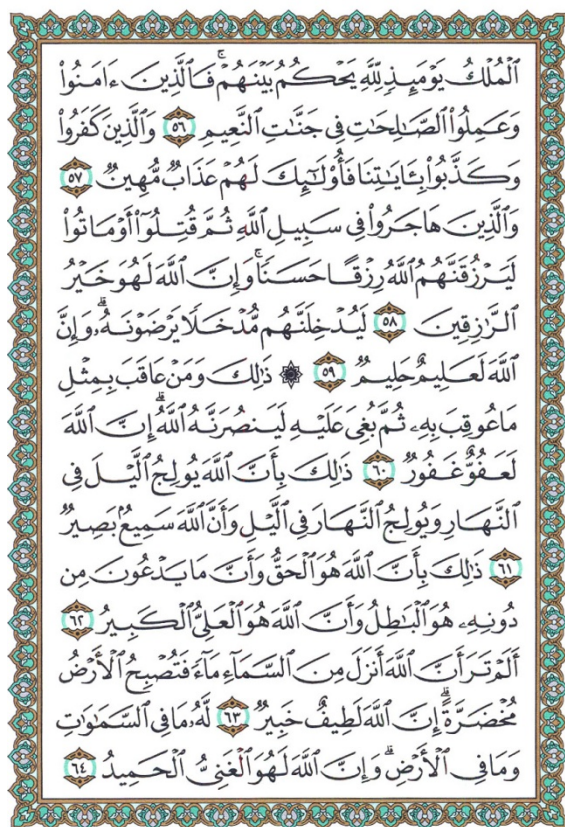 ٱلْمُلْكُ يَوْمَئِذٍ لِّلَّهِ يَحْكُمُ بَيْنَهُمْ ۚ فَٱلَّذِينَ ءَامَنُوا۟
وَعَمِلُوا۟ ٱلصَّـٰلِحَـٰتِ فِى جَنَّـٰتِ ٱلنَّعِيمِ ٥٦ وَٱلَّذِينَ كَفَرُوا۟
وَكَذَّبُوا۟ بِـَٔايَـٰتِنَا فَأُو۟لَـٰٓئِكَ لَهُمْ عَذَابٌ مُّهِينٌ ٥٧
وَٱلَّذِينَ هَاجَرُوا۟ فِى سَبِيلِ ٱللَّهِ ثُمَّ قُتِلُوٓا۟ أَوْ مَاتُوا۟
لَيَرْزُقَنَّهُمُ ٱللَّهُ رِزْقًا حَسَنًا ۚ وَإِنَّ ٱللَّهَ لَهُوَ خَيْرُ
ٱلرَّٰزِقِينَ ٥٨ لَيُدْخِلَنَّهُم مُّدْخَلًا يَرْضَوْنَهُۥ ۗ وَإِنَّ
ٱللَّهَ لَعَلِيمٌ حَلِيمٌ ٥٩ ۞ ذَٰلِكَ وَمَنْ عَاقَبَ بِمِثْلِ
مَا عُوقِبَ بِهِۦ ثُمَّ بُغِىَ عَلَيْهِ لَيَنصُرَنَّهُ ٱللَّهُ ۗ إِنَّ ٱللَّهَ
لَعَفُوٌّ غَفُورٌ ٦٠ ذَٰلِكَ بِأَنَّ ٱللَّهَ يُولِجُ ٱلَّيْلَ فِى
ٱلنَّهَارِ وَيُولِجُ ٱلنَّهَارَ فِى ٱلَّيْلِ وَأَنَّ ٱللَّهَ سَمِيعٌۢ بَصِيرٌ
٦١ ذَٰلِكَ بِأَنَّ ٱللَّهَ هُوَ ٱلْحَقُّ وَأَنَّ مَا يَدْعُونَ مِن
دُونِهِۦ هُوَ ٱلْبَـٰطِلُ وَأَنَّ ٱللَّهَ هُوَ ٱلْعَلِىُّ ٱلْكَبِيرُ ٦٢
أَلَمْ تَرَ أَنَّ ٱللَّهَ أَنزَلَ مِنَ ٱلسَّمَآءِ مَآءً فَتُصْبِحُ ٱلْأَرْضُ
مُخْضَرَّةً ۗ إِنَّ ٱللَّهَ لَطِيفٌ خَبِيرٌ ٦٣ لَّهُۥ مَا فِى ٱلسَّمَـٰوَٰتِ
وَمَا فِى ٱلْأَرْضِ ۗ وَإِنَّ ٱللَّهَ لَهُوَ ٱلْغَنِىُّ ٱلْحَمِيدُ ٦٤